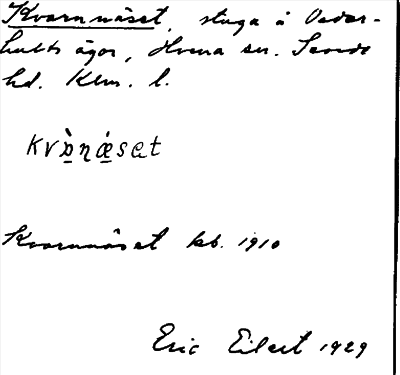 Kvarnnäset, stuga å Oedar-
hults ägor, Hvena sn. Sevede
hd. Klm. l.
kvɒ̀ɳǽsət
Kvarnnäset kb. 1910
Eric Eilert 1929